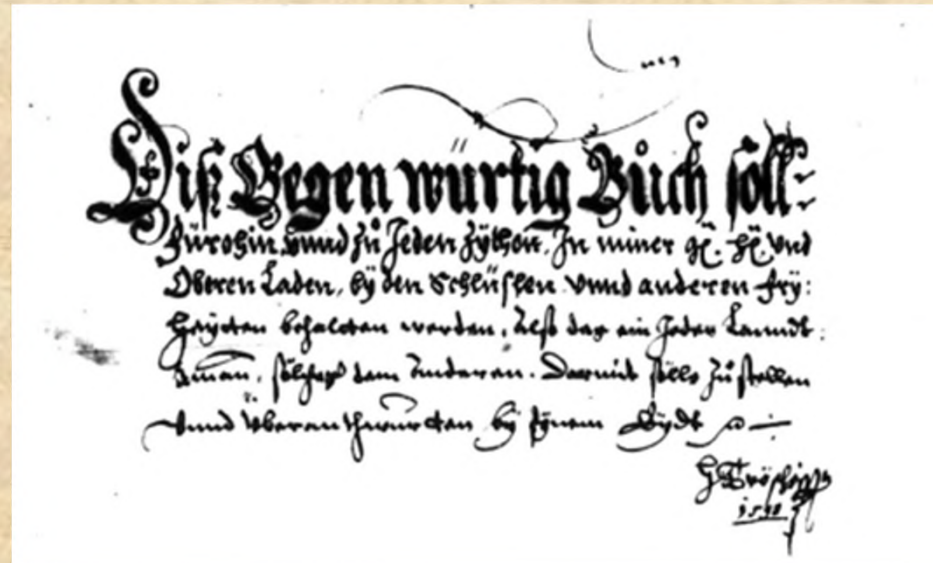 Diß Gegen würtig Bůch söll=
fürohin, vnnd zů Jeden Zÿthen, In miner gh. hh. vnd
Oberen Laden, bÿ den Schlüßlen vnnd anderen frÿ:
heÿtten behalten werden, Alß das ein Jeder Lanndt:
aman, sölches dem Anderen. Darmit sölle zůstellen
vnnd überanthwurtten bÿ sÿnem Eÿdt